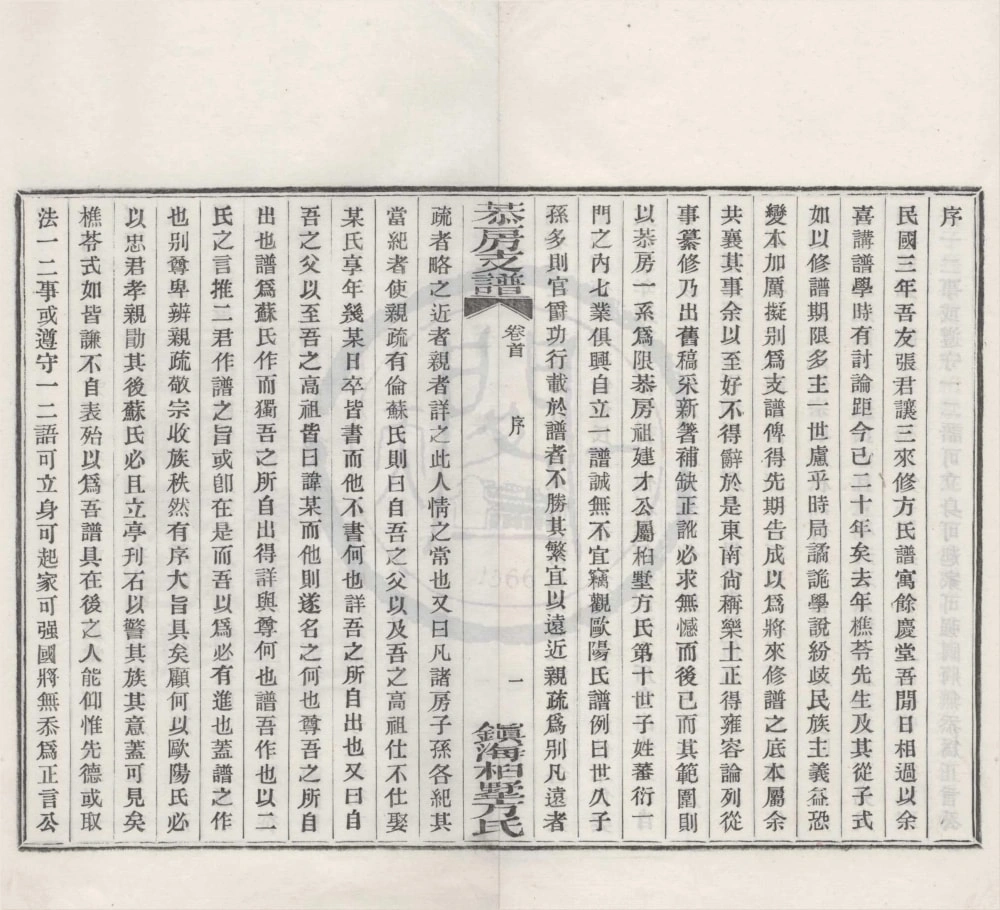 序
民國三年吾友張君讓三來修方氏譜寓餘慶堂吾閒日相過以余
喜講譜學時有討論距今已二十年矣去年樵苓先生及其從子式
如以修譜期限多主一世慮乎時局譎詭學說紛歧民族主義益恐
變本加厲擬別爲支譜俾得先期告成以爲將來修譜之底本屬余
共襄其事余以至好不得辭於是東南尙稱樂土正得雍容論列從
事纂修乃出舊稿采新箸補缺正訛必求無憾而後已而其範圍則
以恭房一系爲限恭房祖建才公屬柏墅方氏第十世子姓蕃衍一
門之內七業俱興自立一譜誠無不宜竊觀歐陽氏譜例曰世久子
孫多則官爵功行載於譜者不勝其繁宜以遠近親疏爲別凡遠者
恭房支譜 卷首 序 一 鎮海柏墅方氏
疏者略之近者親者詳之此人情之常也又曰凡諸房子孫各紀其
當紀者使親疏有倫蘇氏則曰自吾之父以及吾之高祖仕不仕娶
某氏享年幾某日卒皆書而他不書何也詳吾之所自出也又曰自
吾之父以至吾之高祖皆曰諱某而他則遂名之何也尊吾之所自
出也譜爲蘇氏作而獨吾之所自出得詳與尊何也譜吾作也以二
氏之言推二君作譜之旨或卽在是而吾以爲必有進也蓋譜之作
也別尊卑辨親疏敬宗收族秩然有序大旨具矣顧何以歐陽氏必
以忠君孝親勖其後蘇氏必且立亭刊石以警其族其意蓋可見矣
樵苓式如皆謙不自表殆以爲吾譜具在後之人能仰惟先德或取
法一二事或遵守一二語可立身可起家可强國將無忝爲正言公